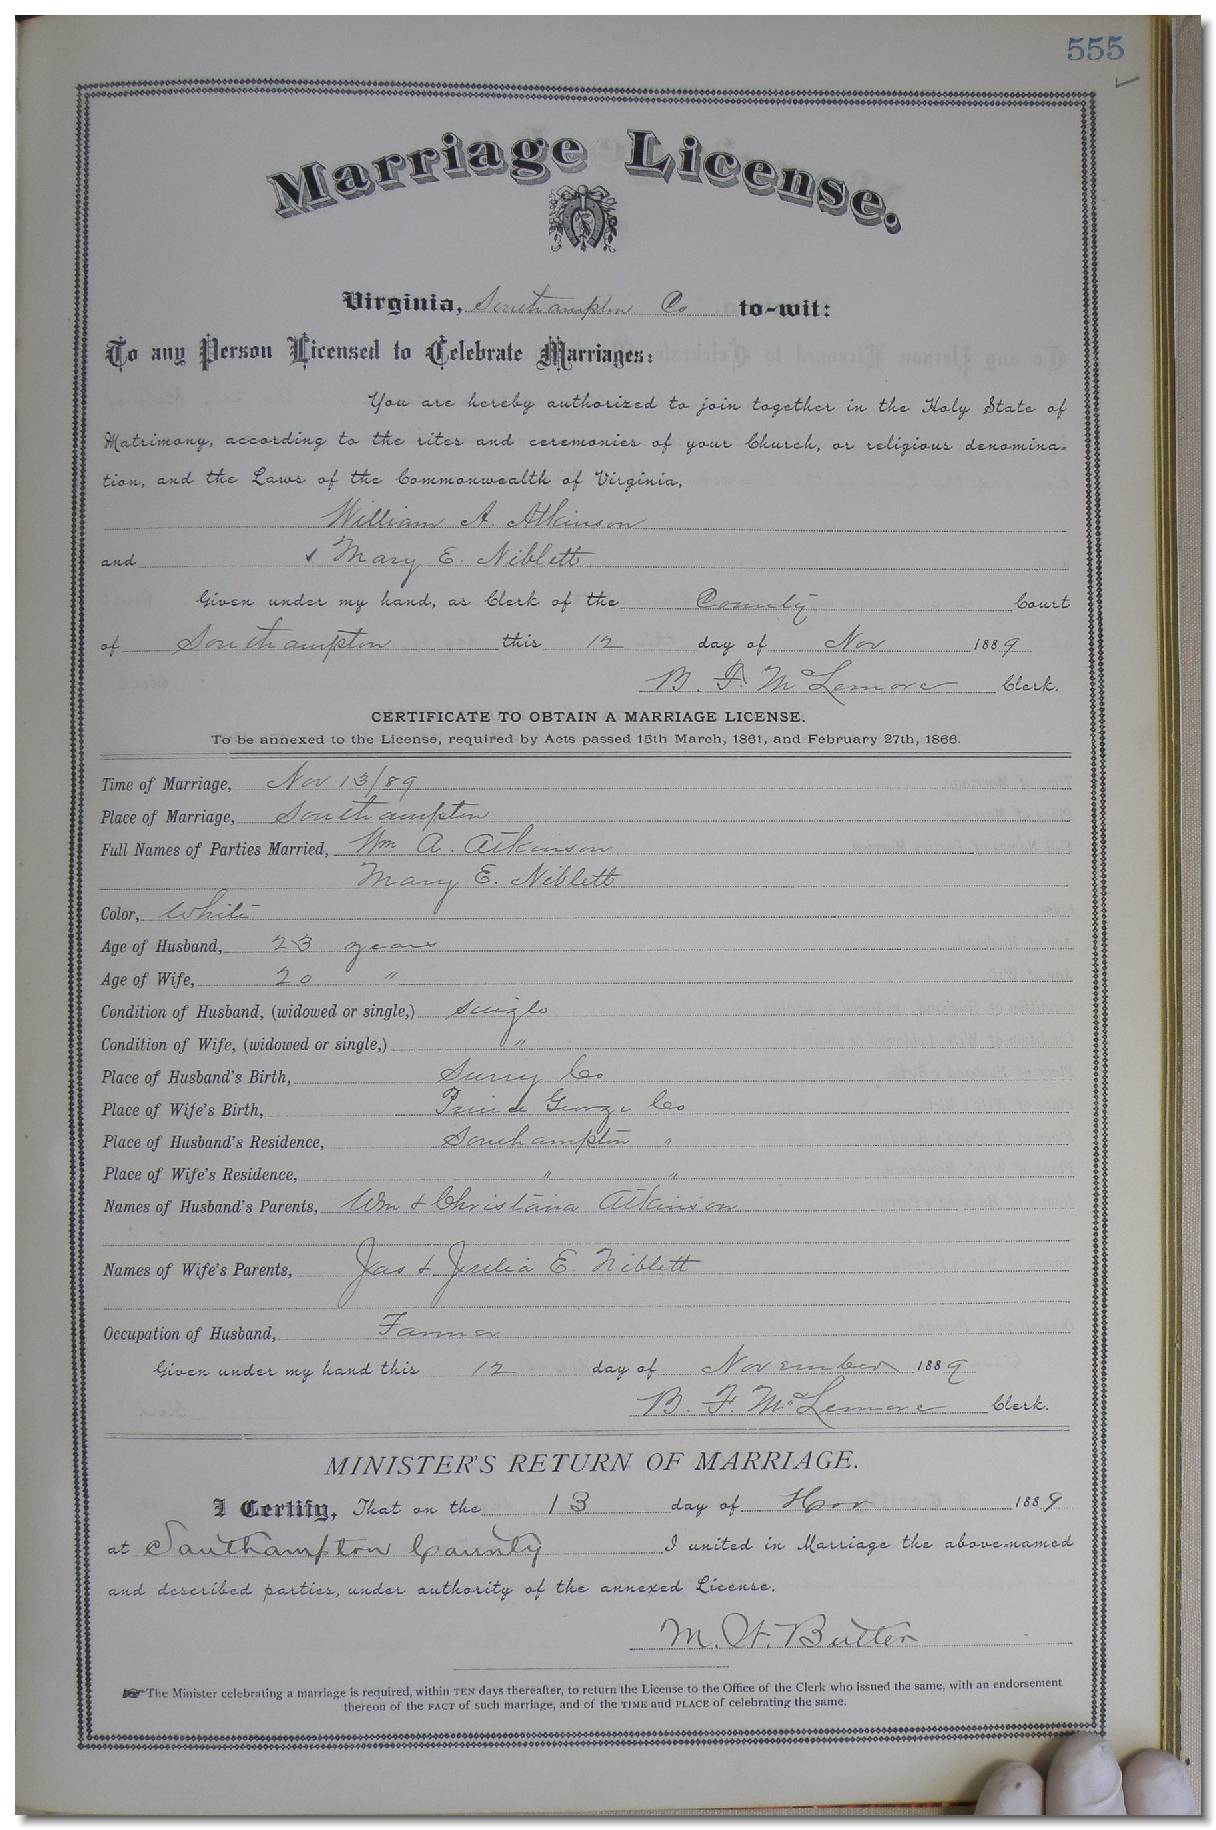 555
Marriage License.
Virginia, Southampton Co to-wit:
To any Person Licensed to Celebrate Marriages:
You are hereby authorized to join together in the Holy State of
Matrimony, according to the rites and ceremonies of your Church, or religious denomina-
tion, and the Laws of the Commonwealth of Virginia,
William A. Atkinson
and Mary E. Niblett
Given under my hand, as Clerk of the County Court
of Southampton this 12 day of Nov 1889
B. F. McLemore Clerk.
CERTIFICATE TO OBTAIN A MARRIAGE LICENSE.
To be annexed to the License, required by Acts passed 15th March, 1861, and February 27th, 1866.
Time of Marriage, Nov 13/89
Place of Marriage, Southampton
Full Names of Parties Married, Wm A. Atkinson
Mary E. Niblett
Color, White
Age of Husband, 23 years
Age of Wife, 20 "
Condition of Husband, (widowed or single,) Single
Condition of Wife, (widowed or single,) "
Place of Husband's Birth, Surry Co
Place of Wife's Birth, Prince George Co
Place of Husband's Residence, Southampton "
Place of Wife's Residence, " "
Names of Husband's Parents, Wm & Christana Atkinson
Names of Wife's Parents, Jas & Julia E. Niblett
Occupation of Husband, Farmer
Given under my hand this 12 day of November 1889
B. F. McLemore Clerk.
MINISTER'S RETURN OF MARRIAGE.
I Certify, That on the 13 day of Nov 1889
at Southampton County I united in Marriage the above-named
and described parties, under authority of the annexed License.
M. W. Butler
The Minister celebrating a marriage is required, within TEN days thereafter, to return the License to the Office of the Clerk who issued the same, with an endorsement
thereon of the FACT of such marriage, and of the TIME and PLACE of celebrating the same.